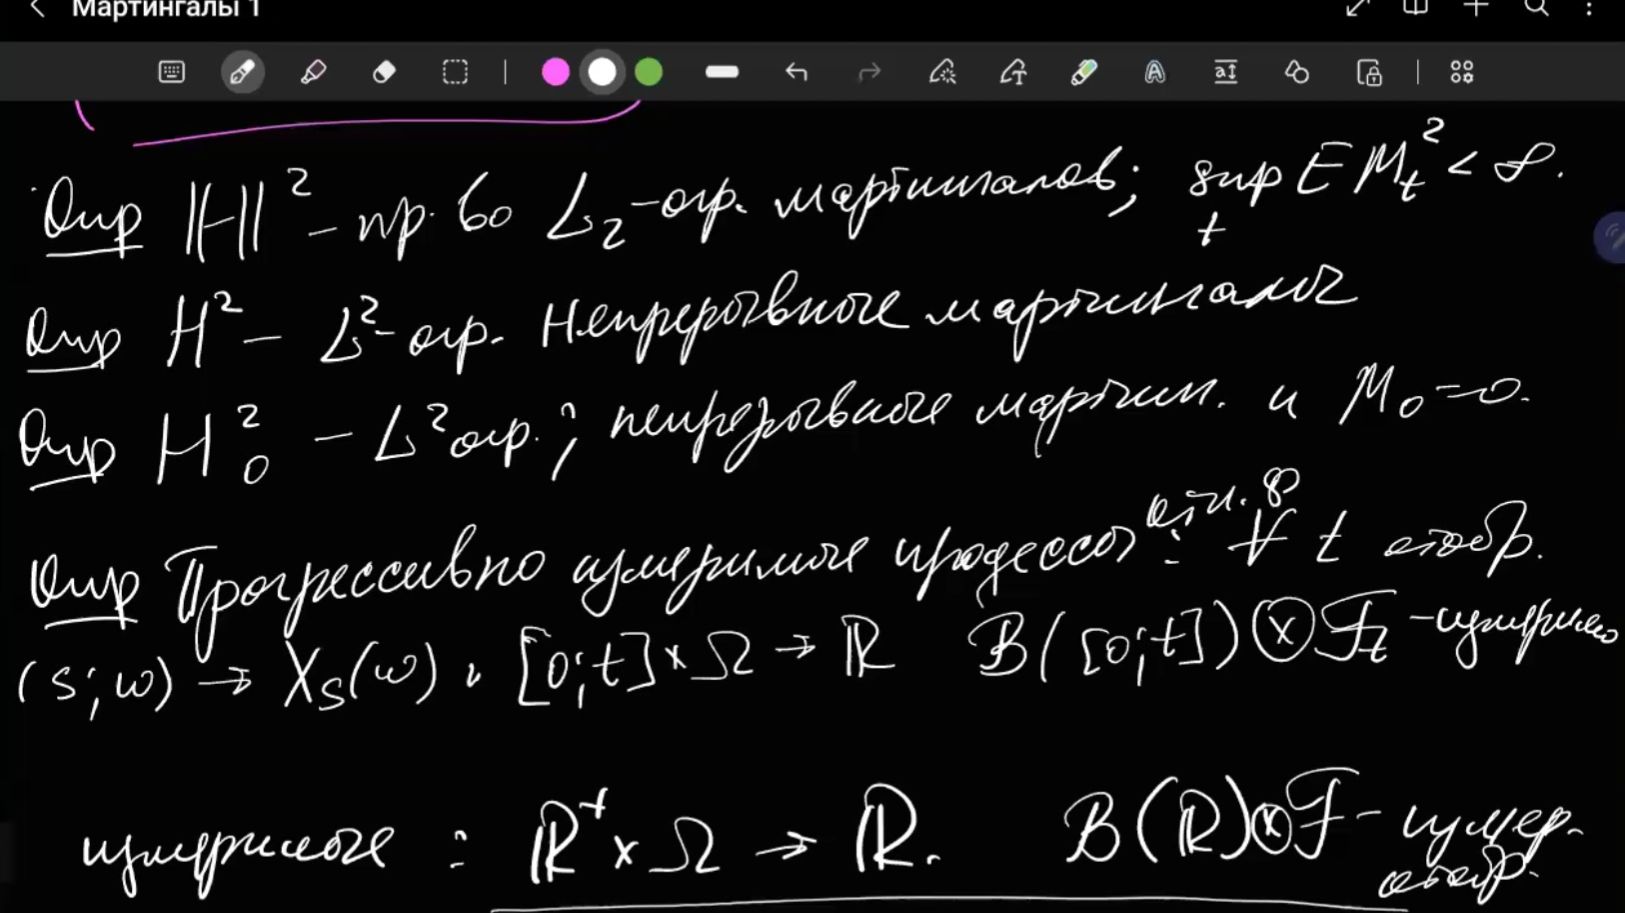 Мартингалы 1
Опр ℍ² – пр-во L₂-огр. мартингалов; sup E M_t² < ∞.
t
Опр H² – L²-огр. непрерывные мартингалы
Опр H²₀ – L² огр.; непрерывные мартин. и M₀ = 0.
Опр Прогрессивно измеримые процессы : ∀ t отобр.
(s; ω) → X_s(ω) : [0; t] × Ω → ℝ B([0; t]) ⊗ F_t - измеримо
измеримые : ℝ⁺ × Ω → ℝ. B(ℝ) ⊗ F - измер.
отобр.